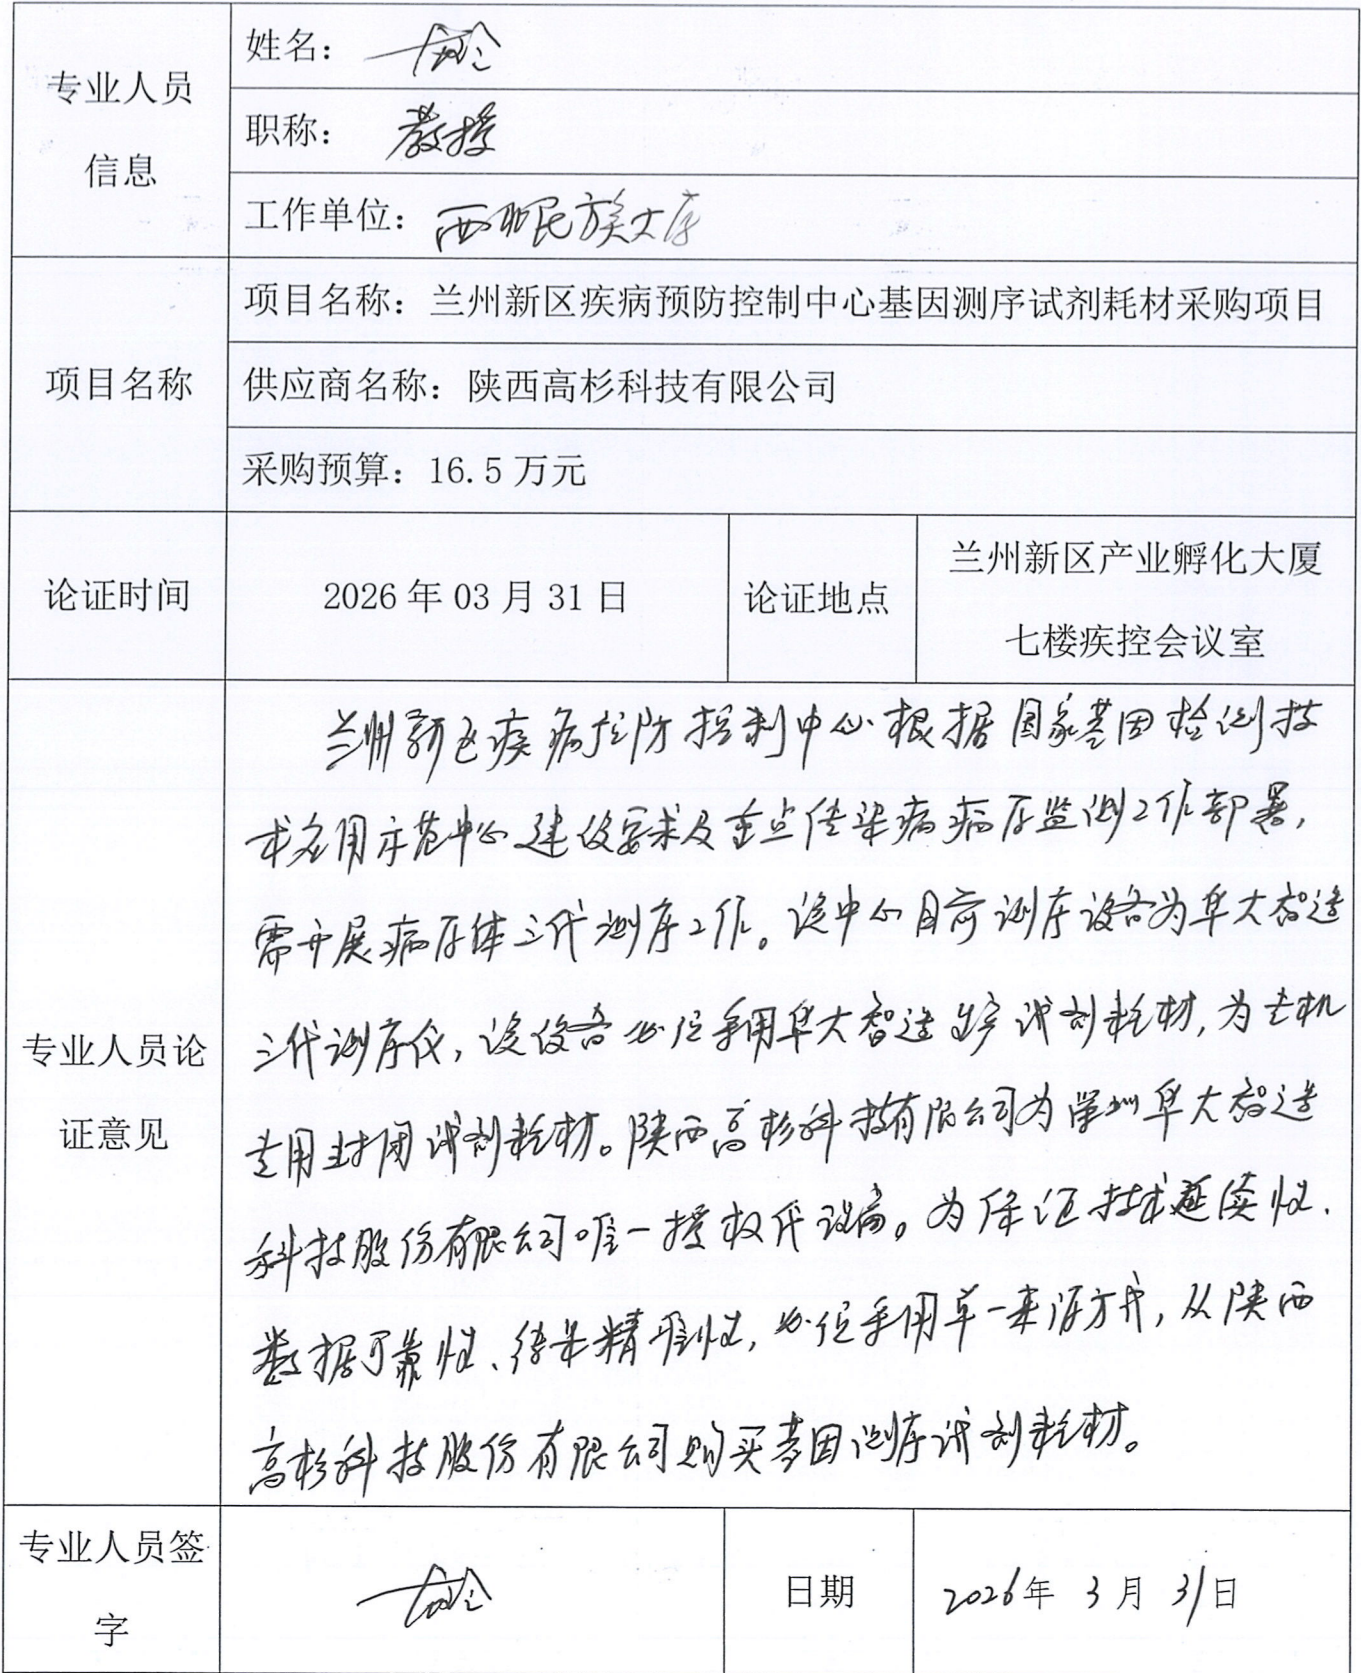 专业人员
信息
姓名：
职称： 教授
工作单位： 西北民族大学
项目名称
项目名称：兰州新区疾病预防控制中心基因测序试剂耗材采购项目
供应商名称：陕西高杉科技有限公司
采购预算：16.5 万元
论证时间
2026 年 03 月 31 日
论证地点
兰州新区产业孵化大厦
七楼疾控会议室
专业人员论
证意见
兰州新区疾病预防控制中心根据国家基因检测技
术应用示范中心建设要求及重点传染病病原监测工作部署，
需开展病原体三代测序工作。该中心目前测序设备为华大智造
三代测序仪，该设备必须采用华大智造生产试剂耗材，为专机
专用封闭试剂耗材。陕西高杉科技有限公司为深圳华大智造
科技股份有限公司唯一授权代理商。为保证技术延续性、
数据可靠性、结果精准性，必须采用单一来源方式，从陕西
高杉科技股份有限公司购买基因测序试剂耗材。
专业人员签
字
日期
2026年 3 月 31日